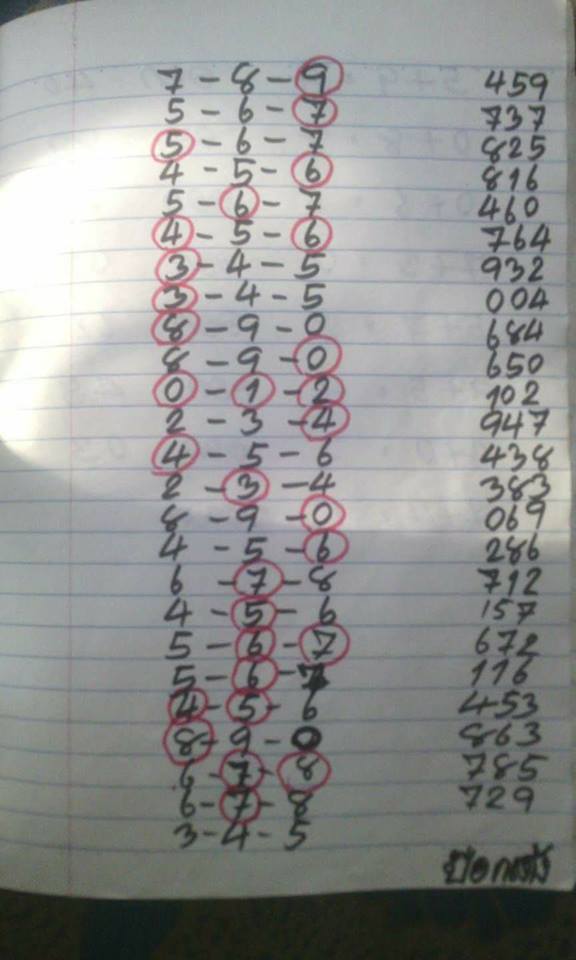 7 - 8 - 9 459
5 - 6 - 7 737
5 - 6 - 7 825
4 - 5 - 6 816
5 - 6 - 7 460
4 - 5 - 6 764
3 - 4 - 5 932
3 - 4 - 5 004
8 - 9 - 0 684
8 - 9 - 0 650
0 - 1 - 2 102
2 - 3 - 4 947
4 - 5 - 6 438
2 - 3 - 4 383
8 - 9 - 0 069
4 - 5 - 6 286
6 - 7 - 8 712
4 - 5 - 6 157
5 - 6 - 7 672
5 - 6 - 7 116
4 - 5 - 6 453
8 - 9 - 0 863
6 - 7 - 8 785
6 - 7 - 8 729
3 - 4 - 5